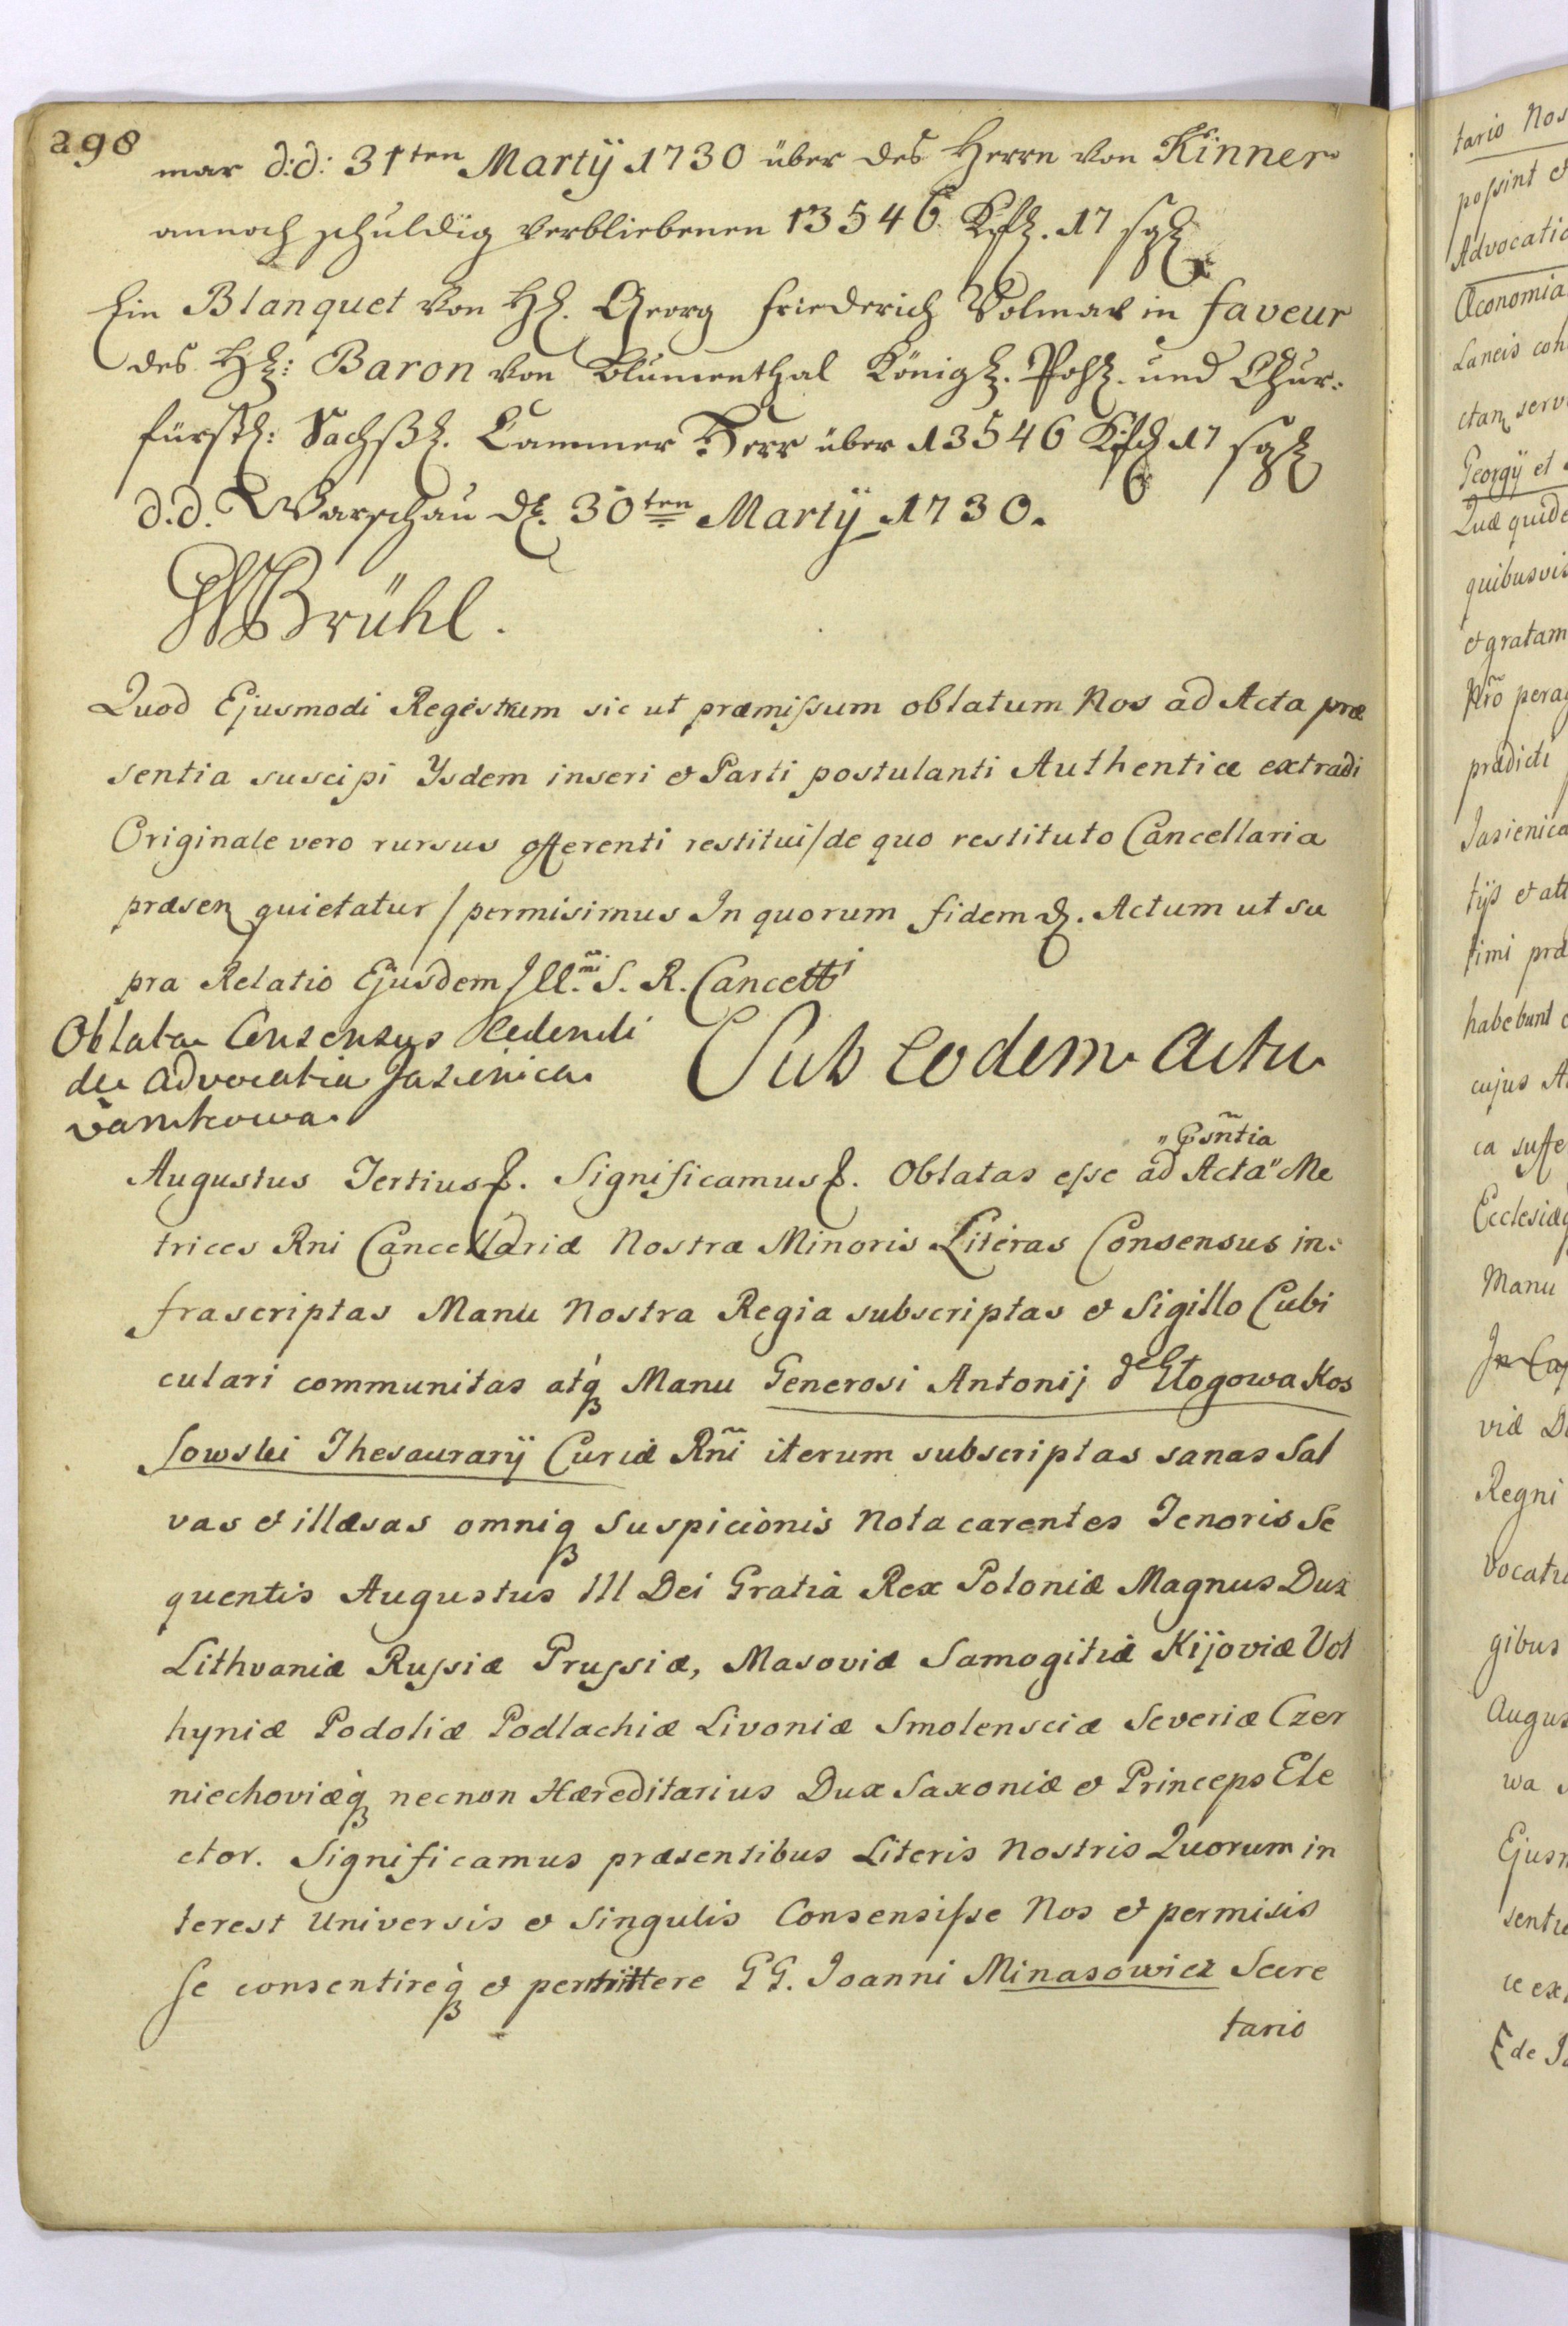 298
mar d:d: 31ten Martÿ 1730 über des Herrn von Kinner
annoch schuldig verbliebenen 13546. 17
Ein Blanquet von H. Georg Friederich Volmar in faveur
des H: Baron von Blumenthal Königl. Pohl. und Chur-
fürstl: Sächßl. Cammer Herr über 13546 17
d.d. Warschau d. 30ten Martÿ 1730.
Brühl.
Quod Ejusmodi Regestrum sic ut præmissum oblatum Nos ad Acta præ
sentia suscipi Ysdem inseri & Parti postulanti Authenticæ extradi
Originale vero rursus offerenti restitui / de quo restituto Cancellaria
præsen quietatur / permisimus In quorum fidem &. Actum ut su
pra Relatio Ejusdem Illmi. S. R. Cancelli
Oblata Consensus Cedendi
de Advocatia Jasienica
Sub eodem Actu
Psñtia
Augustus Tertius &. Significamus &. Oblatas esse ad Acta " Me
trices Rni Cancellariæ Nostræ Minoris Literas Consensus in-
frascriptas Manu Nostra Regia subscriptas & Sigillo Cubi
culari communitas atq́ Manu Generosi Antonij de Głogowa Kos
sowski Thesaurarÿ Curiæ Rñi iterum subscriptas sanas Sal
vas & illæsas omniq suspicionis Nota carentes Tenoris Se
quentis Augustus III Dei Gratià Rex Poloniæ Magnus Dux
Lithvaniæ Russiæ Prussiæ, Masoviæ Samogitiæ Kijoviæ Vol
hyniæ Podoliæ Podlachiæ Livoniæ Smolensciæ Severiæ Czer
niechoviæq̀ necnon Hæreditarius Dux Saxoniæ & Princeps Ele
ctor. Significamus præsentibus Literis Nostris Quorum in
terest Universis & Singulis Consensisse Nos & permisis
se consentireq̀ & permittere GG. Joanni Minasowicz Secre
tario
tario Nos
possint &
Advocatia
Œconomia
Laneis coh
ctam serv
Georgÿ et
Quæ quide
quibusvis
& gratam
Nrõ perag
prædicti
Jasienica
tÿs & att
timi præ
habebunt
cujus A
ca suffe
Ecclesiæq
Manu
In Cap
viæ D
Regni
vocatu
gibus
Augus
wa
Ejusm
sentia
æ ex
de J